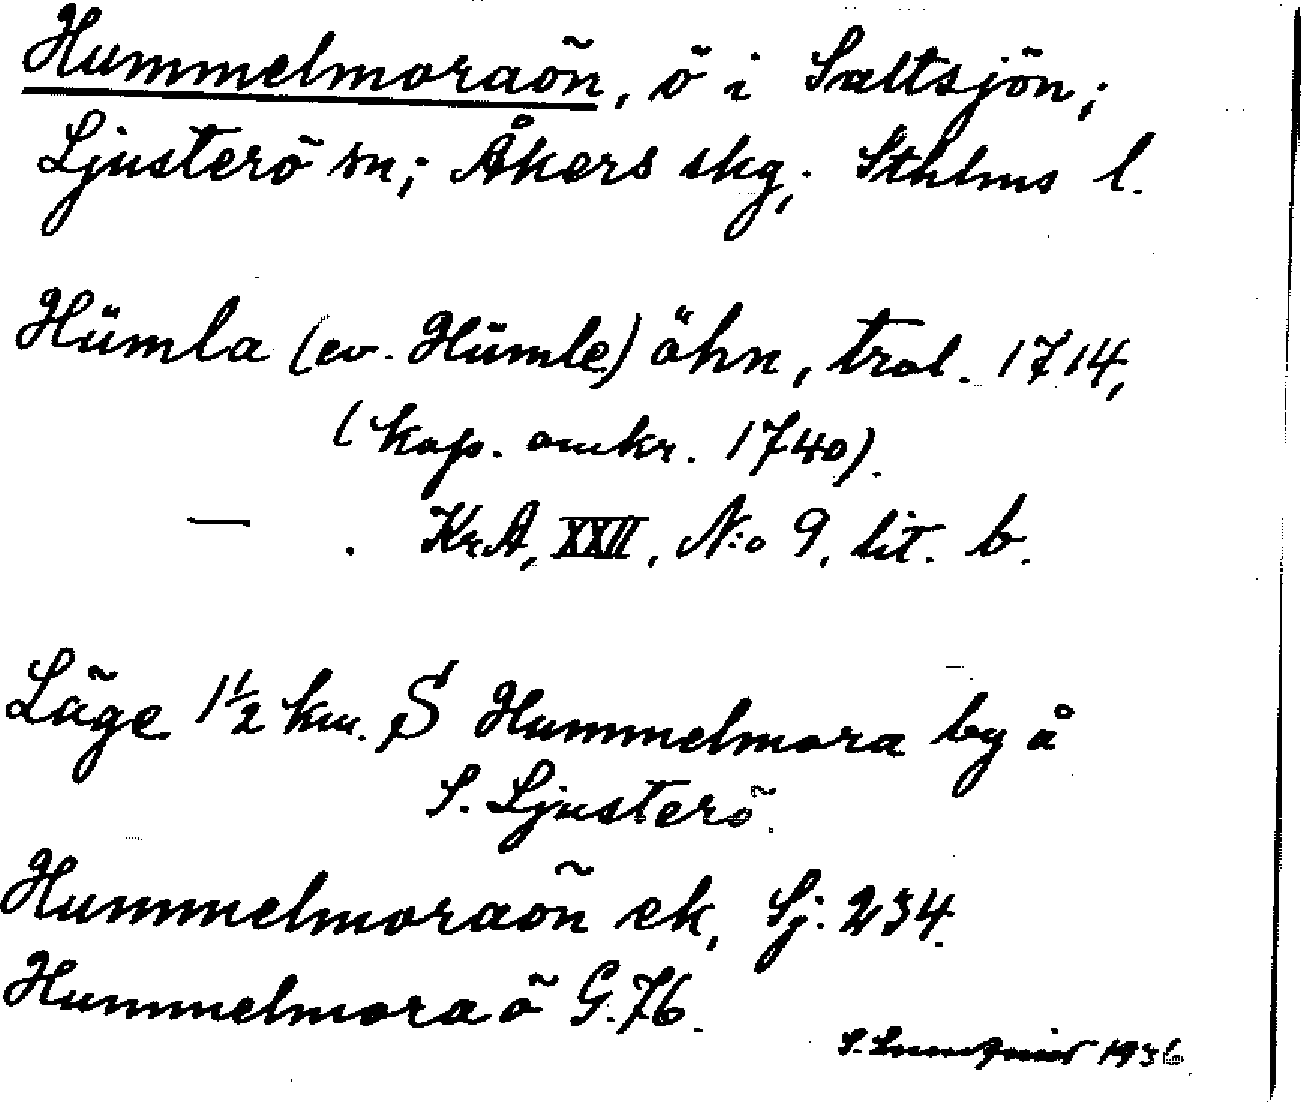 Hummelmoraön, ö i Saltsjön;
Ljusterö sn; Åkers skg; Sthlms l.
Hümla (ev. Hümle) öhn, trol. 1714,
(kop. omkr. 1740).
— . KrA, XXII, N:o 9, lit. b.
Läge 1 1/2 km. S Hummelmora by å
S. Ljusterö.
Hummelmoraön ek, Sj: 234.
Hummelmora ö G.76.
S. 1936